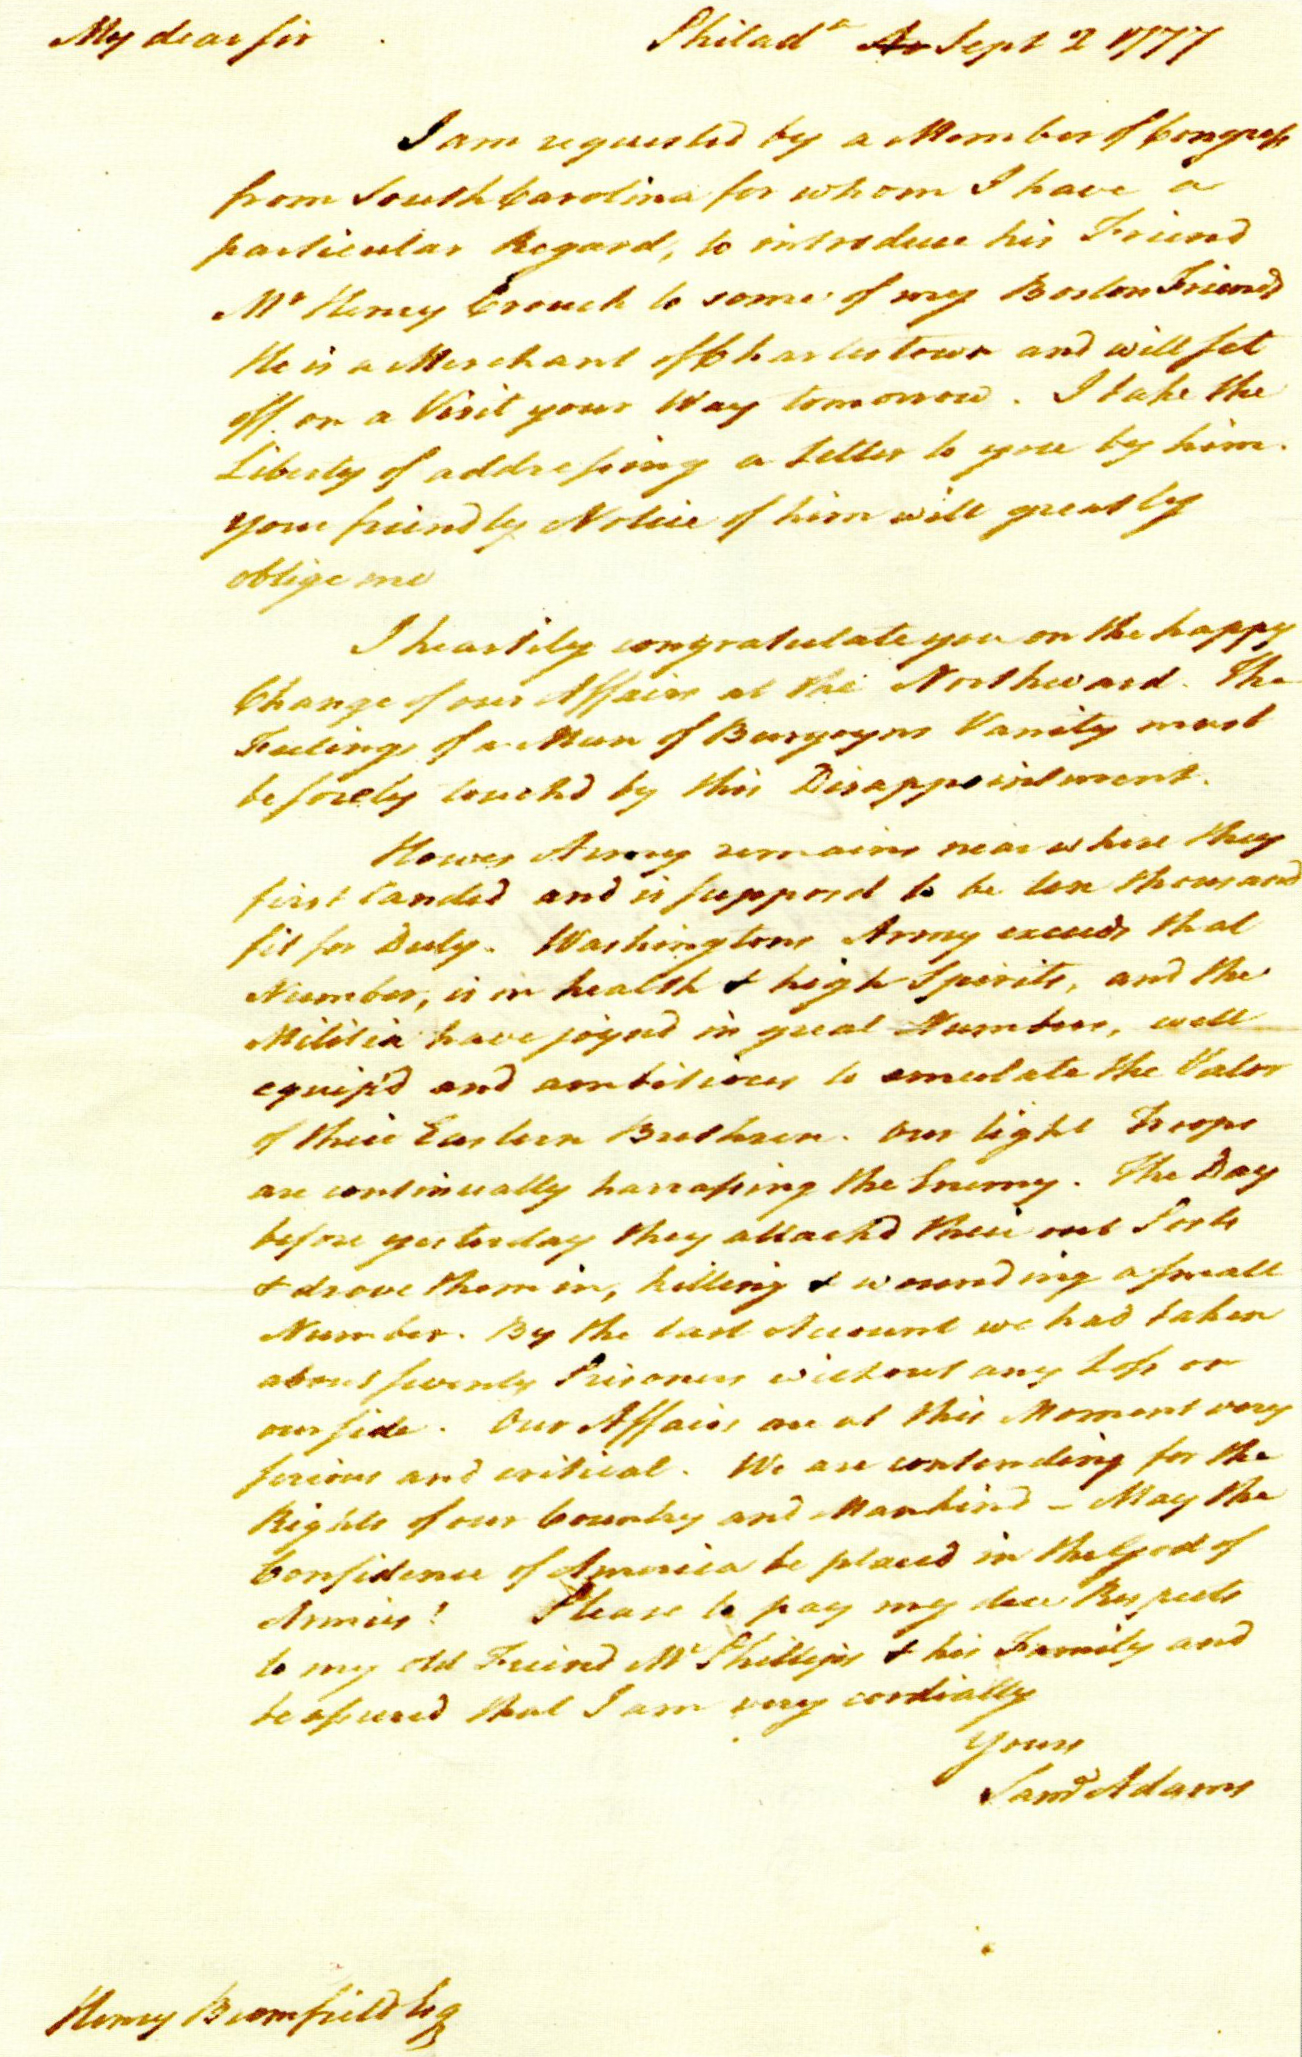 My dear sir Philada Sept 2 1777
I am requested by a Member of Congress
from South Carolina for whom I have a
particular Regard, to introduce his Friend
Mr Henry Crouch to some of my Boston Friends
He is a Merchant of Charlestown and will set
off on a Visit your Way tomorrow. I take the
Liberty of addressing a Letter to you by him.
your friendly Notice of him will greatly
oblige me
I heartily congratulate you on the happy
Change of our Affairs at the Northward. The
Feelings of a Man of Burgoyns Vanity must
be sorely touchd by this Disappointment.
Howes Army remains near where they
first landed and is supposd to be ten thousand
fit for Duty. Washingtons Army exceeds that
Number, is in health & high Spirits, and the
Militia have joynd in great Numbers, well
equip'd and ambitious to emulate the Valor
of their Eastern Brethren. Our light Troops
are continually harrassing the Enemy. The Day
before yesterday they attackd their out Posts
& drove them in, killing & wounding a small
Number. By the last Account we had taken
about seventy Prisoners without any Loss on
our side. Our Affairs are at this Moment very
serious and critical. We are contending for the
Rights of our Country and Mankind - May the
Confidence of America be placed in the God of
Armies! Please to pay my due Respects
to my old Friend Mr Phillips & his Family and
be assured that I am very cordially
Yours
Saml Adams
Henry Bromfield Esq